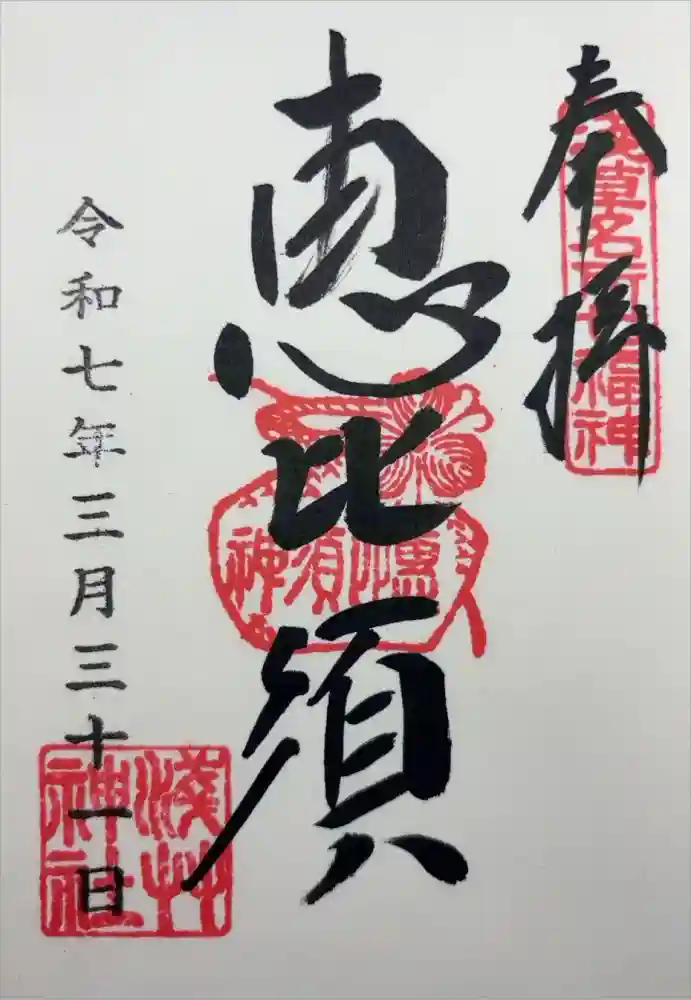 奉拝
浅草名所七福神
恵比須
恵比須神
令和七年三月三十一日
浅草神社